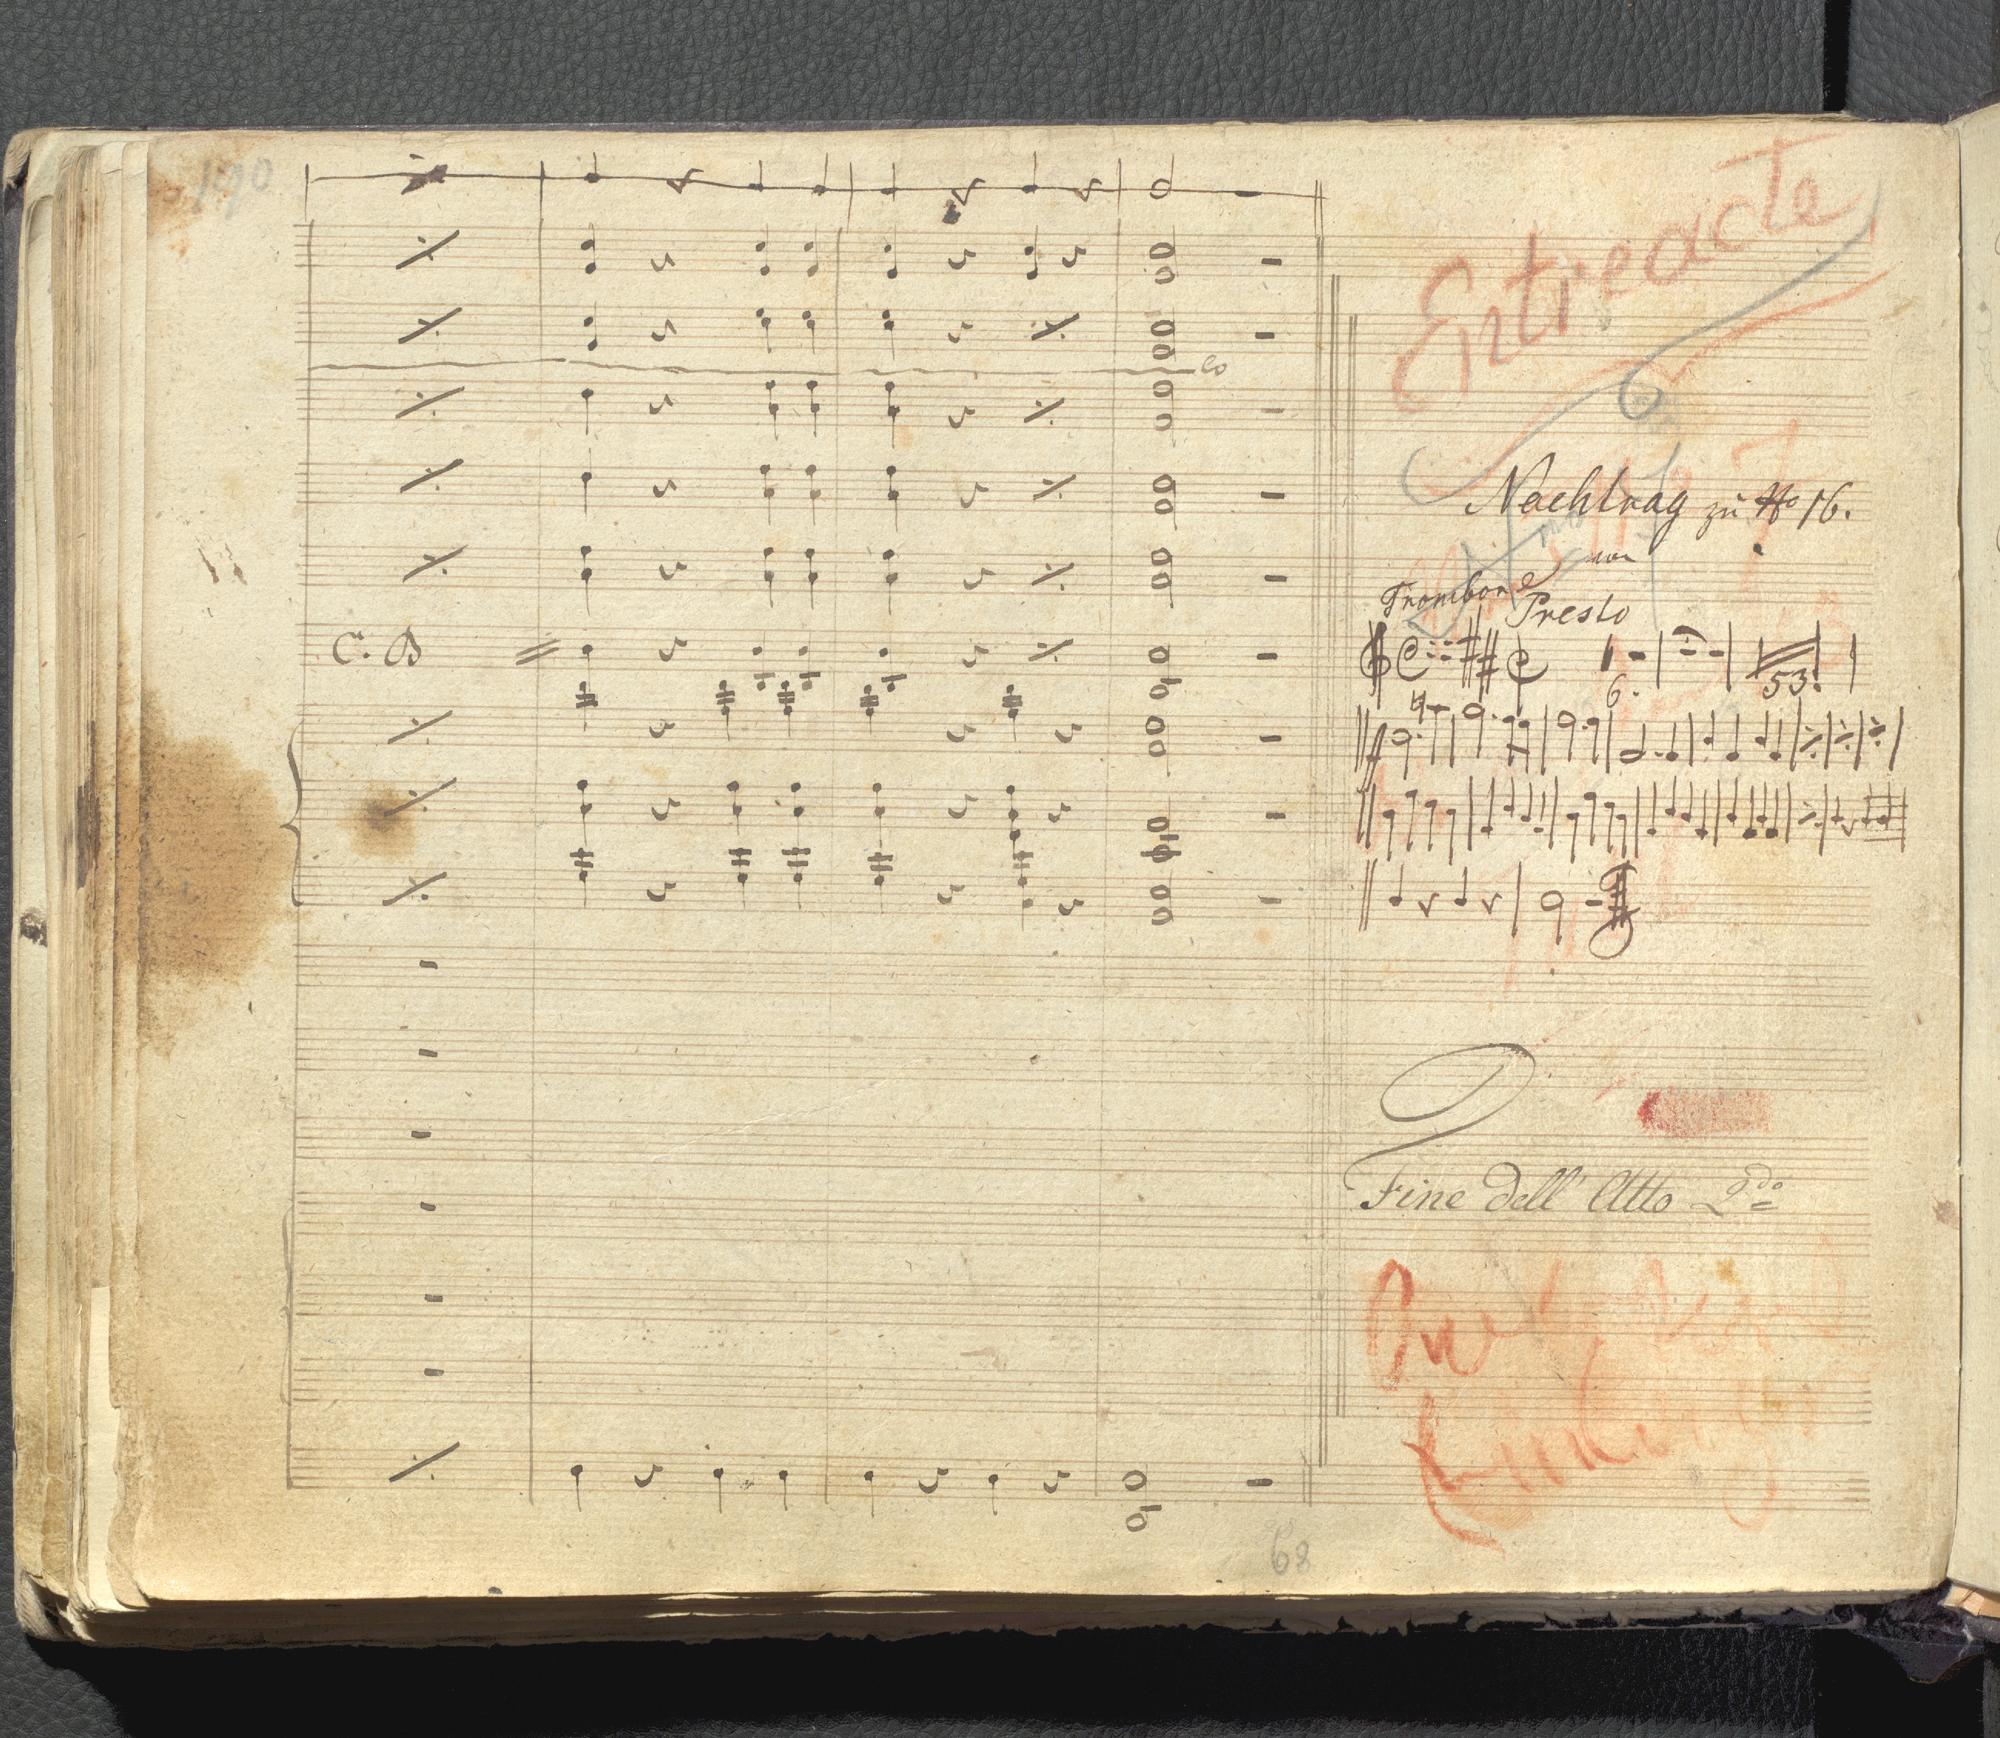 190
Entreacte
Nachtrag zu No 16.
Trombone
Presto
C. B
6.
53.
Fine dell' Atto 2do
68